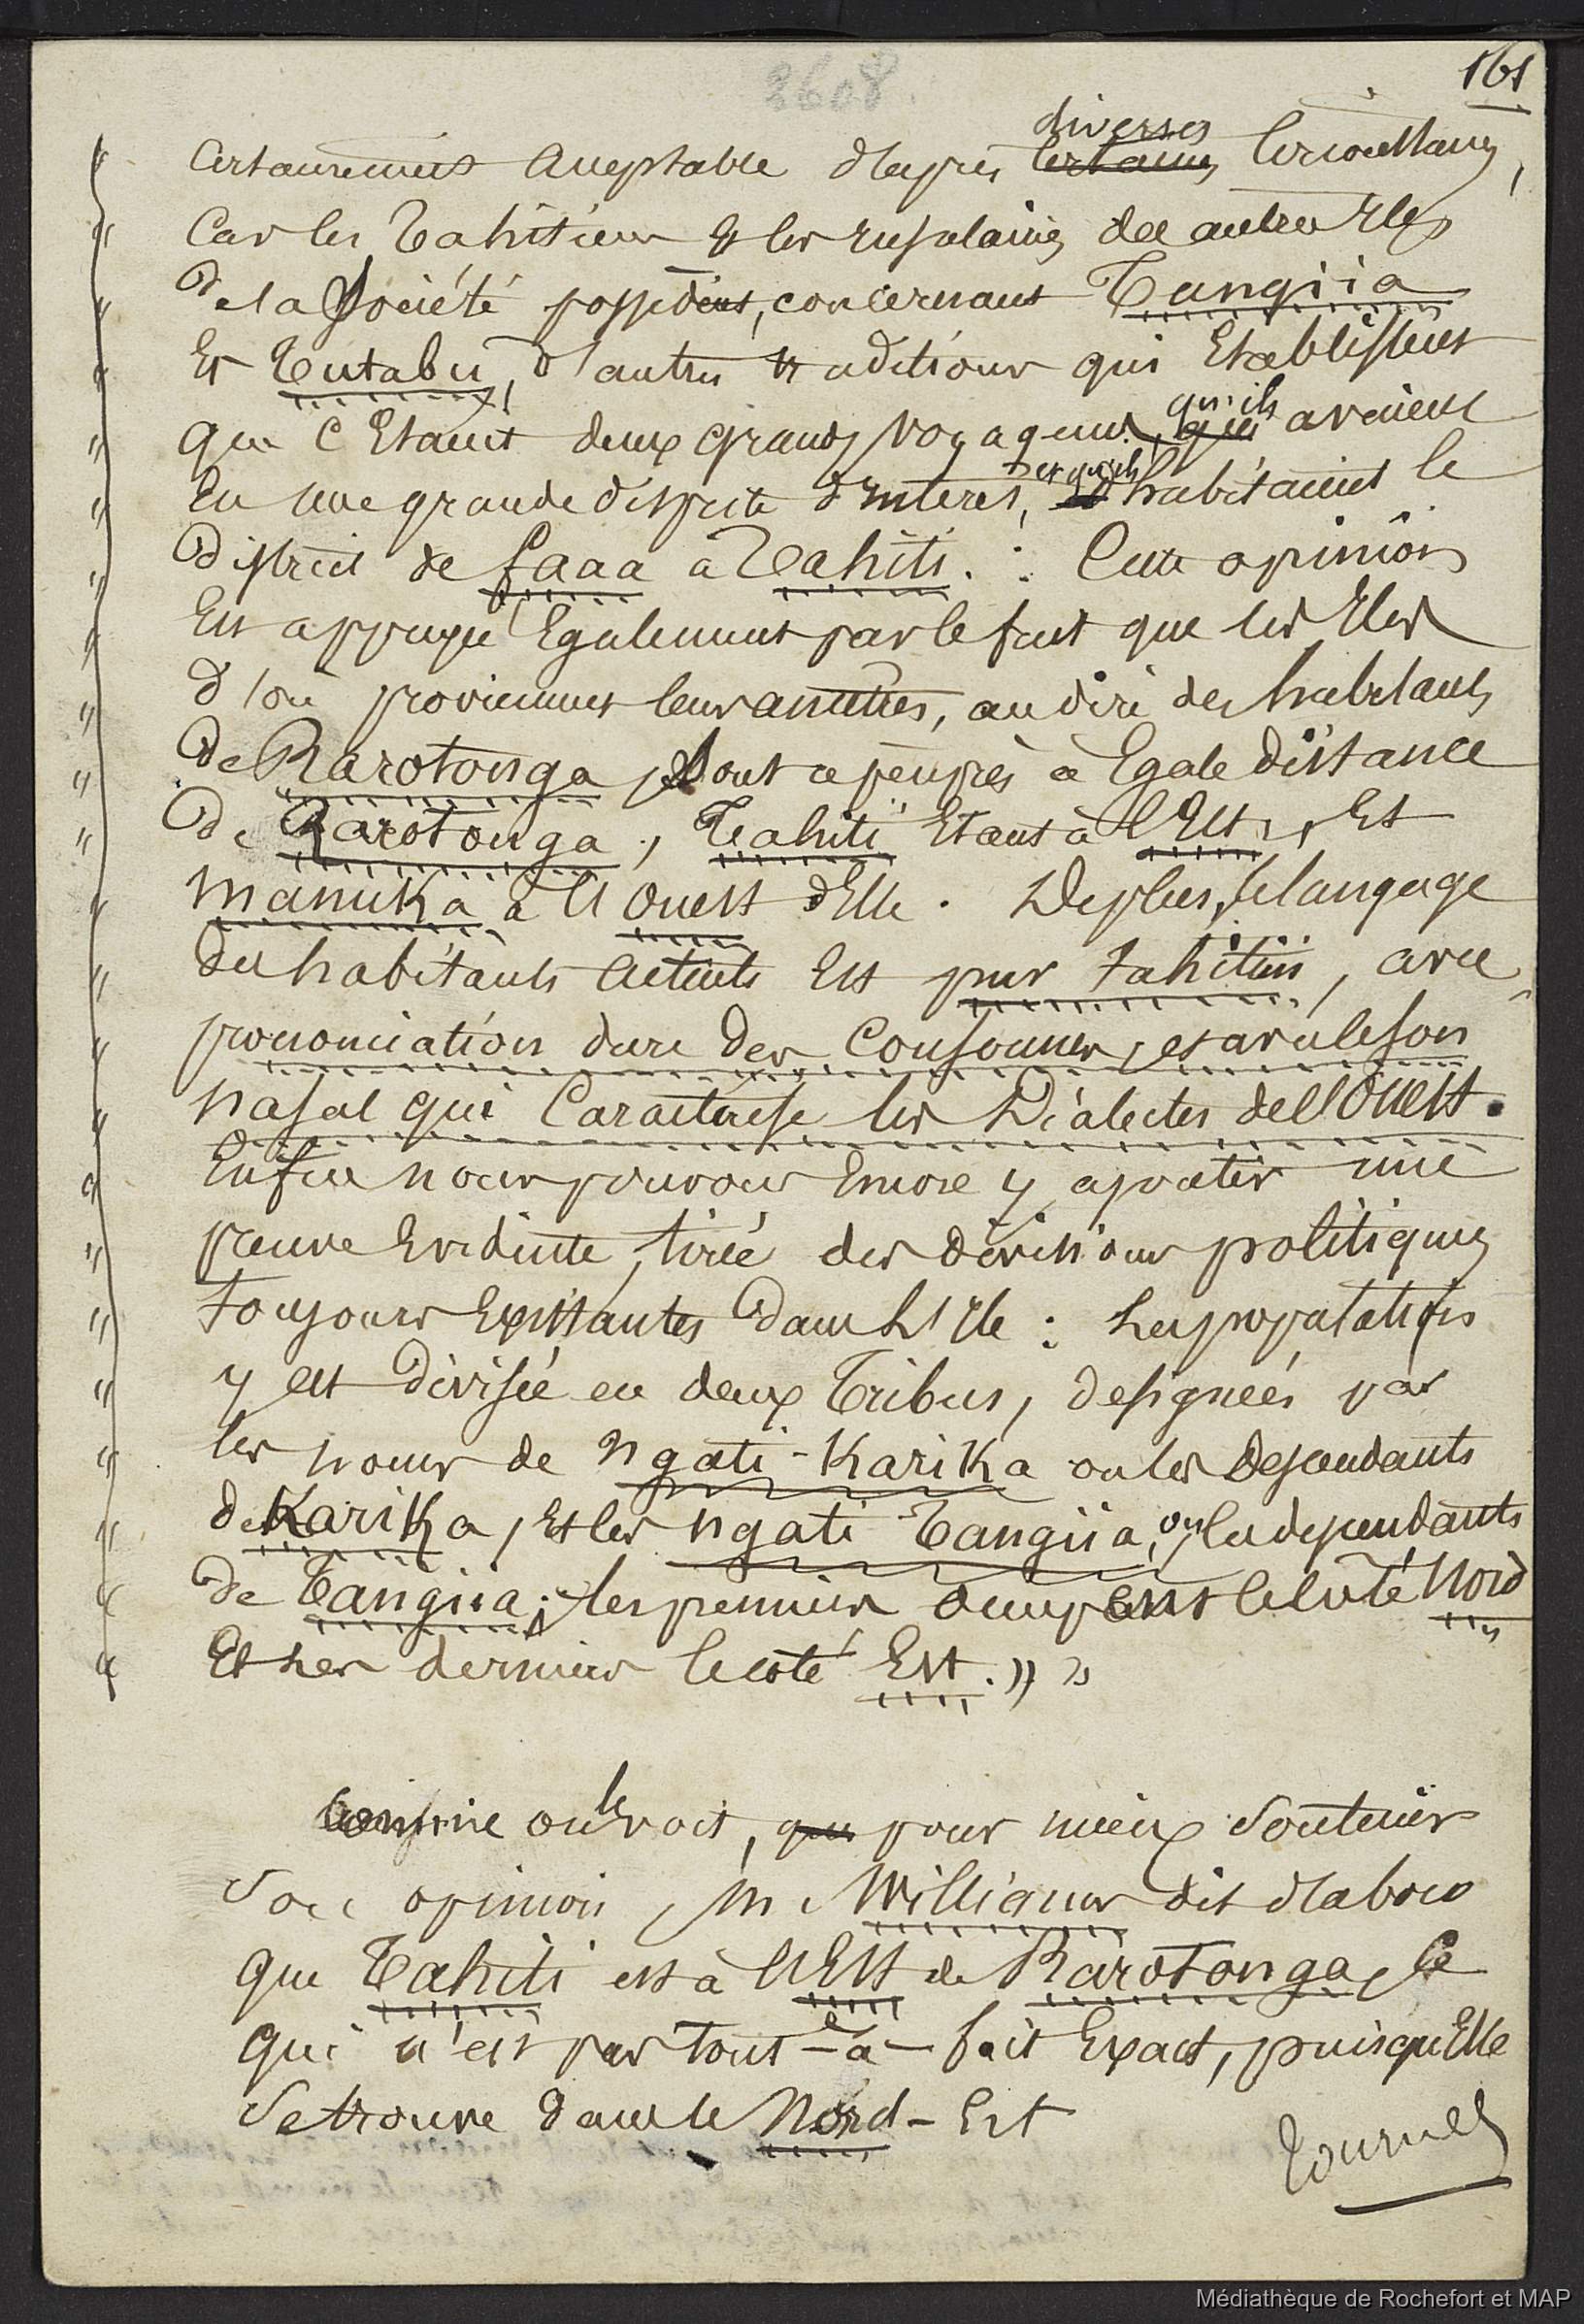 161
2608
diverses
certainement acceptable d'après certaines circonstances,
car les Tahitiens et les insulaires des autres Iles
de la Société possèdent, concernant Tangiia
et Tutabu, d'autres traditions qui établissent
que c'étaient deux grands voyageurs, qu'ils qui avaient
eu une grande dispute d'intérêt, et qu'ils habitaient le
district de faaa à Tahiti. : Cette opinion
est appuyée également par le fait que les Iles
d'où proviennent leurs ancêtres, au dire des habitants
de Rarotonga, sont à peu près à égale distance
de Rarotonga, Tahiti étant à l'Est, et
Manuka à l'Ouest d'elle. De plus, le langage
des habitants actuels est pur tahitien, avec
prononciation dure des consonnes, et avec le son
nasal qui caractérise les Dialectes de l'Ouest.
Enfin nous pouvons encore y ajouter une
preuve évidente, tirée des divisions politiques
toujours existantes dans l'Ile : La population
y est divisée en deux Tribus, désignées par
les noms de Ngati-Karika ou les Descendants
de Karika, et les ngati Tangiia, ou les dependants
de Tangiia; les premiers occupent le côté Nord
et les derniers le côté Est. » »
Comme on le voit, que pour mieux soutenir
son opinion, M. Williams dit d'abord
que Tahiti est à l'Est de Rarotonga, ce
qui n'est pas tout-à-fait exact, puisqu'elle
se trouve dans le Nord-Est
Tournez
Médiathèque de Rochefort et MAP